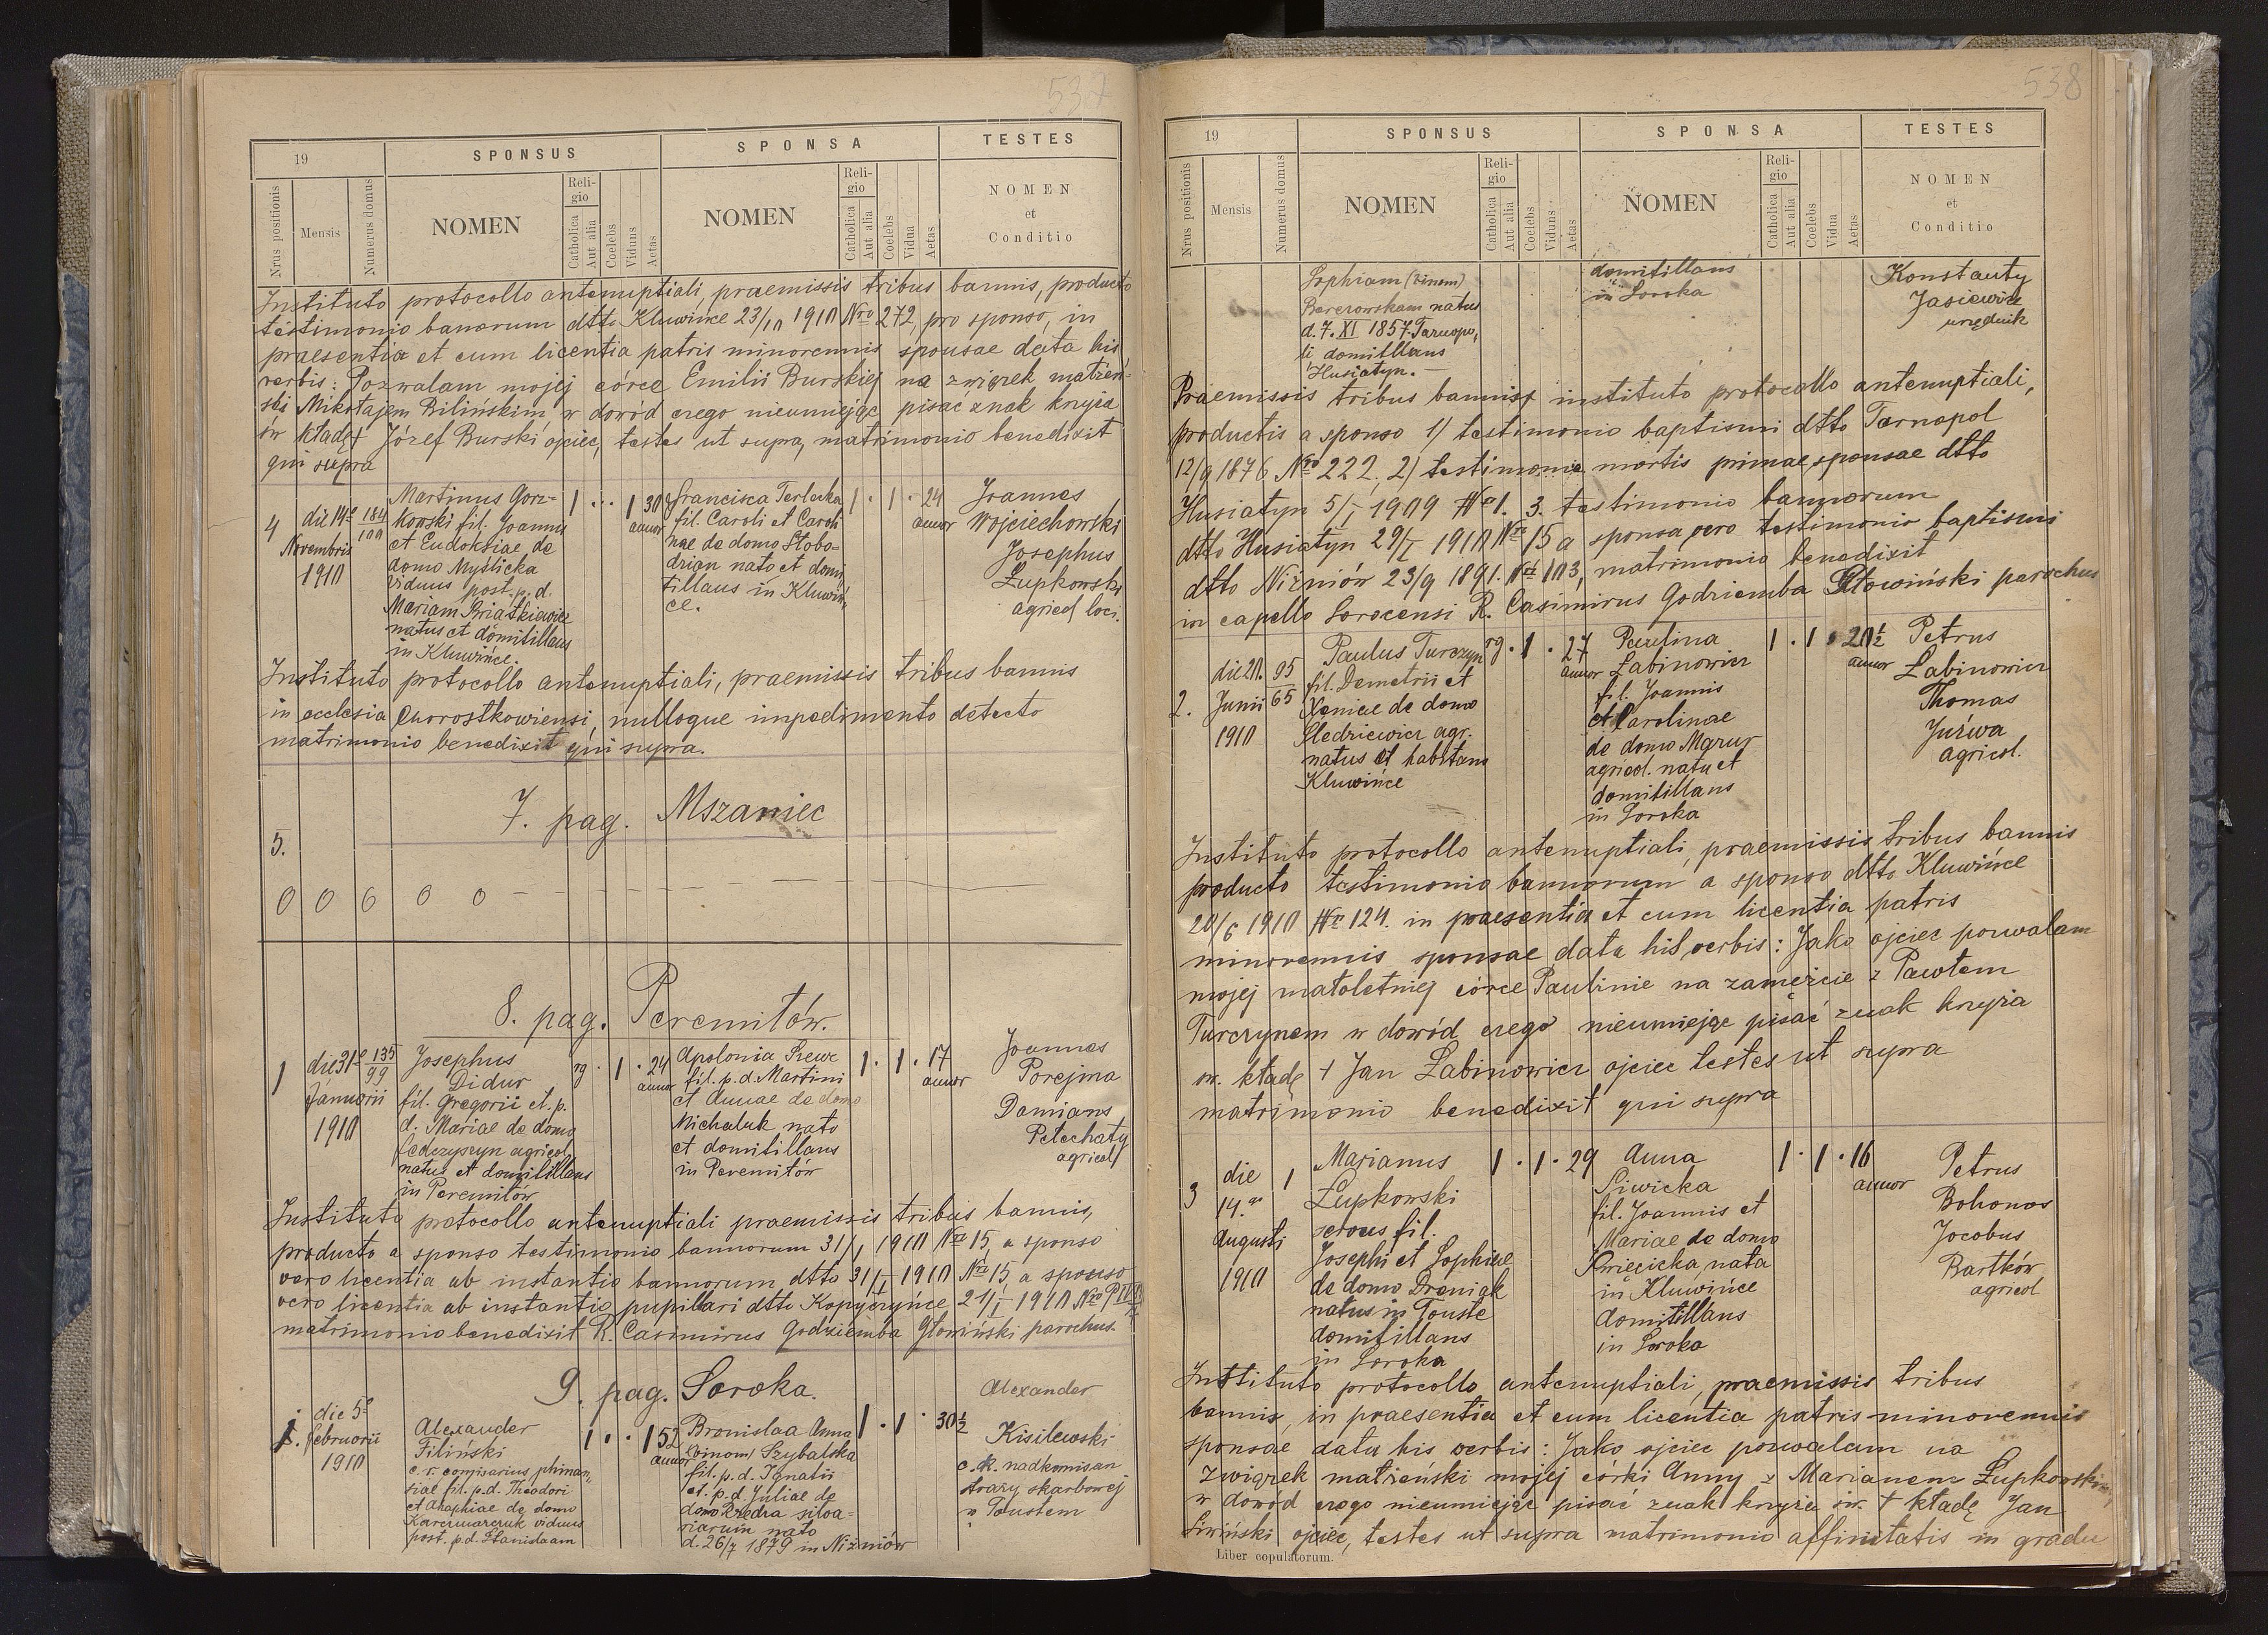 537
19
SPONSUS
SPONSA
TESTES
Nrus positionis
Mensis
Numerus domus
NOMEN
Religio
Catholica
Aut alia
Coelebs
Viduus
Aetas
NOMEN
Religio
Catholica
Aut alia
Coelebs
Vidua
Aetas
NOMEN
et
Conditio
Instituto protocollo antenuptiali, praemissis tribus bannis, producto
testimonio banorum dtto Kluwińce 23/10 1910 Nro 272, pro sponso, in
praesentia et cum licentia patris minorennis sponsae data his
verbis: Pozwalam mojej córce Emilii Burskiej na związek małżeń-
ski Mikołajem Bilińskim, w dowód czego nieumiejąc pisać znak krzyża
św kładę + Józef Burski ojciec, testes ut supra, matrimonio benedixit
qui supra
4
die 14e
Novembris
1910
184
100
Martinus Gorz-
kowski fil. Joannis
et Eudoksiae de
domo Myślicka
viduus post. p. d.
Mariam
natus et domitillans
in Kluwińce.
1 . . 1 30
annor
Francisca Terlecka
fil. Caroli et Caroli
nae de domo Słobo-
drian nata et domi
tillans in Kluwiń
ce.
1 . 1 . 24
annor
Joannes
Wojciechowski
Josephus
Łupkowski
agricol loci.
Instituto protocollo antenuptiali, praemissis tribus bannis
in ecclesia Chorostkowiensi, nulloque impedimento detecto
matrimonio benedixit qui supra.
7. pag. Mszaniec
5.
0 0 0 0 0
8. pag. Peremiłów.
1
die 31e
Januarii
1910
135
99
Josephus
Didur
fil. Gregorii et. p.
d. Mariae de domo
Fedczyszyn agricol
natus et domitillans
in Peremiłów
rg . 1 . 24
annor
Apolonia Szewc
fil. p. d. Martini
et Annae de domo
Michaluk nata
et domitillans
in Peremiłów
1 . 1 . 17
annor
Joannes
Porejma
Damians
Petechaty
agricol
Instituto protocollo antenuptiali praemissis tribus bannis,
producto a sponso testimonio bannorum 31/1 1910 Nro 15, a sponso
vero licentia ab instantia bannorum dtto 31/I 1910 Nro 15, a sponso
vero licentia ab instantia pupillari dtto Kopyczyńce 21/I 1910 Nro
matrimonio benedixit R. Casimirus Godziemba Głowiński parochus.
9. pag. Soroka.
1.
die 5e
Februarii
1910
Alexander
Filiński
c. r. comisarius phinan-
siae fil. p. d. Theodori
et Anaphiae de domo
Karczmarczuk viduus
post. p. d. Stanislaam
1 . . 1 52
annor
Bronislaa Anna
(binom) Szybalska
fil. p. d. Ignatii
et. p. d. Juliae de
domo Rzedra silva-
siarum nata
d. 26/7 1879 in Niżniów
1 . 1 . 30½
Alexander
Kisilewski
c. k. nadkomisarz
straży skarbowej
w Toustem
538
19
SPONSUS
SPONSA
TESTES
Nrus positionis
Mensis
Numerus domus
NOMEN
Religio
Catholica
Aut alia
Coelebs
Viduus
Aetas
NOMEN
Religio
Catholica
Aut alia
Coelebs
Vidua
Aetas
NOMEN
et
Conditio
Sophiam (binom)
Berezowskam natus
d. 7. XI 1857. Tarnopo,
li domitillans
Husiatyn. —
domitillans
in Soroka
Konstanty
Jasiewicz
urzędnik
Praemissis tribus bannis, instituto protocollo antenuptiali,
productis a sponso 1) testimonio baptismi dtto Tarnopol
12/9 1876 Nro 222. 2) testimonio mortis primae sponsae dtto
Husiatyn 5/I 1909 No 1. 3. testimonio bannorum
dtto Husiatyn 29/I 1910 Nro 15 a sponsa vero testimonio baptismi
dtto Niżniów 23/9 1891. Nro 103, matrimonio benedixit
in capello Sorocensi R. Casimirus Godziemba Głowiński parochus
2.
die 20.
Junii
1910
95
65
Paulus Turczyn
fil. Demetrii et
Xeniae de domo
Śledziewicz agr.
natus et habitans
Kluwińce
rg . 1 . 27
annor
Paulina
Łabinowicz
fil. Joannis
et Carolinae
de domo Mazur
agricol. nata et
domitillans
in Soroka
1 . 1 . 20½
annor
Petrus
Łabinowicz
Thomas
Juźwa
agricol.
Instituto protocollo antenuptiali, praemissis tribus bannis
producto testimonio bannorum a sponso dtto Kluwińce
20/6 1910 Nro 124. in praesentia et cum licentia patris
minorennis sponsae data his verbis: Jako ojciec pozwalam
mojej małoletniej córce Paulinie na zamęście z Pawłem
Turczynem w dowód czego nieumiejąc pisać znak krzyża
św. kładę + Jan Łabinowicz ojciec testes ut supra
matrimonio benedixit qui supra
3
die
14.a
Augusti
1910
1
Marianus
Łupkowski
servus fil.
Josephi et Sophiae
de domo Dreniak
natus in Touste
domitillans
in Soroka
1 . 1 . 29
Anna
Siwicka
fil. Joannis et
Mariae de domo
Święcicka nata
in Kluwińce
domitillans
in Soroka
1 . 1 . 16
annor
Petrus
Bohonos
Jacobus
Bartków
agricol
Instituto protocollo antenuptiali, praemissis tribus
bannis, in praesentia et cum licentia patris minorennis
sponsae data his verbis: Jako ojciec pozwalam na
związek małżeński mojej córki Anny z Marianem Łupkowskim,
w dowód czego nieumiejąc pisać znak krzyża św. + kładę Jan
Siwiński ojciec, testes ut supra matrimonio affinitatis in gradu
Liber copulatorum.